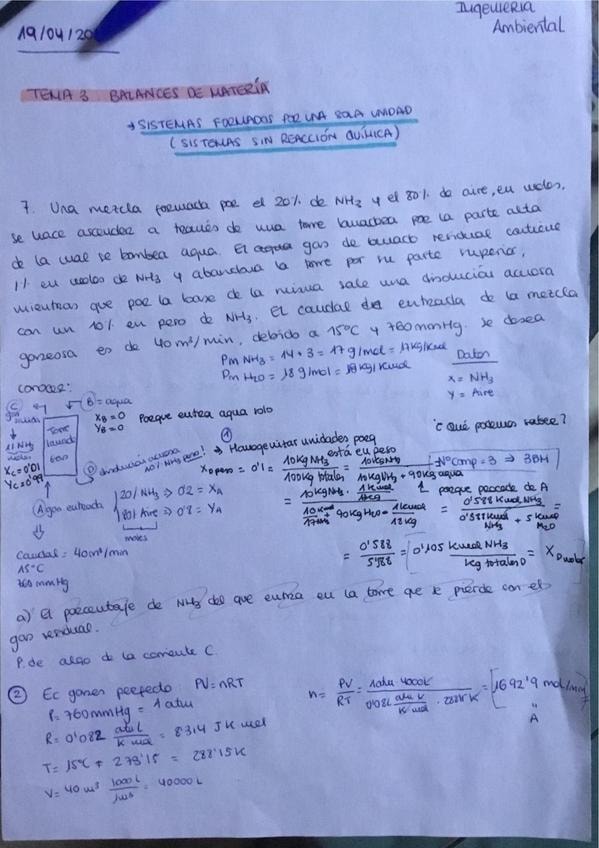 Ingeniería
Ambiental
19/04/20
TEMA 3 BALANCES DE MATERÍA
→ SISTEMAS FORMADOS POR UNA SOLA UNIDAD
(SISTEMAS SIN REACCIÓN QUÍMICA)
7. Una mezcla formada por el 20% de NH3 y el 80% de aire, en moles,
se hace ascender a través de una torre lavadora por la parte alta
de la cual se bombea agua. El gas de lavado residual contiene
1% en moles de NH3 y abandona la torre por su parte superior,
mientras que por la base de la misma sale una disolución acuosa
con un 10% en peso de NH3. El caudal de entrada de la mezcla
gaseosa es de 40 m³/min, debido a 15ºC y 760 mmHg. Se desea
conocer:
Pm NH3 = 14 + 3 = 17 g/mol = 17 kg/kmol
Pm H2O = 18 g/mol = 18 kg/kmol
Datos
x = NH3
y = Aire
C
gas
B = agua
XB = 0
YB = 0
Porque entra agua solo
Torre
1% NH3
XC = 0'01
YC = 0'99
D disolución acuosa
10% NH3 peso!
A gas entrada
20% NH3 ⇒ 0'2 = XA
80% Aire ⇒ 0'8 = YA
moles
Caudal = 40 m³/min
15ºC
760 mmHg
¿Qué podemos saber?
① → Homogeneizar unidades porq
está en peso
XD peso = 0'1 = 10 kg NH3 / 100 kg totales = 10 kg NH3 / 10 kg NH3 + 90 kg agua
Nº comp = 3 ⇒ 3BM
porque procede de A
= 0'588 kmol NH3 / 0'588 kmol NH3 + 5 kmol H2O =
= 0'588 / 5'88 = 0'105 kmol NH3 / kg totales D = XD molar
a) El porcentaje de NH3 del que entra en la torre que se pierde con el
gas residual.
P. de algo de la corriente C.
② Ec gases perfecto: PV = nRT
P = 760 mmHg = 1 atm
R = 0'082 atm L / K mol = 8'314 J K mol
T = 15ºC + 273'15 = 288'15 K
V = 40 m³ 1000 L / 1 m³ = 40000 L
n = PV / RT = 1 atm 40000 L / 0'082 atm L / K mol · 288'15 K = 1692'9 mol/min
"
A